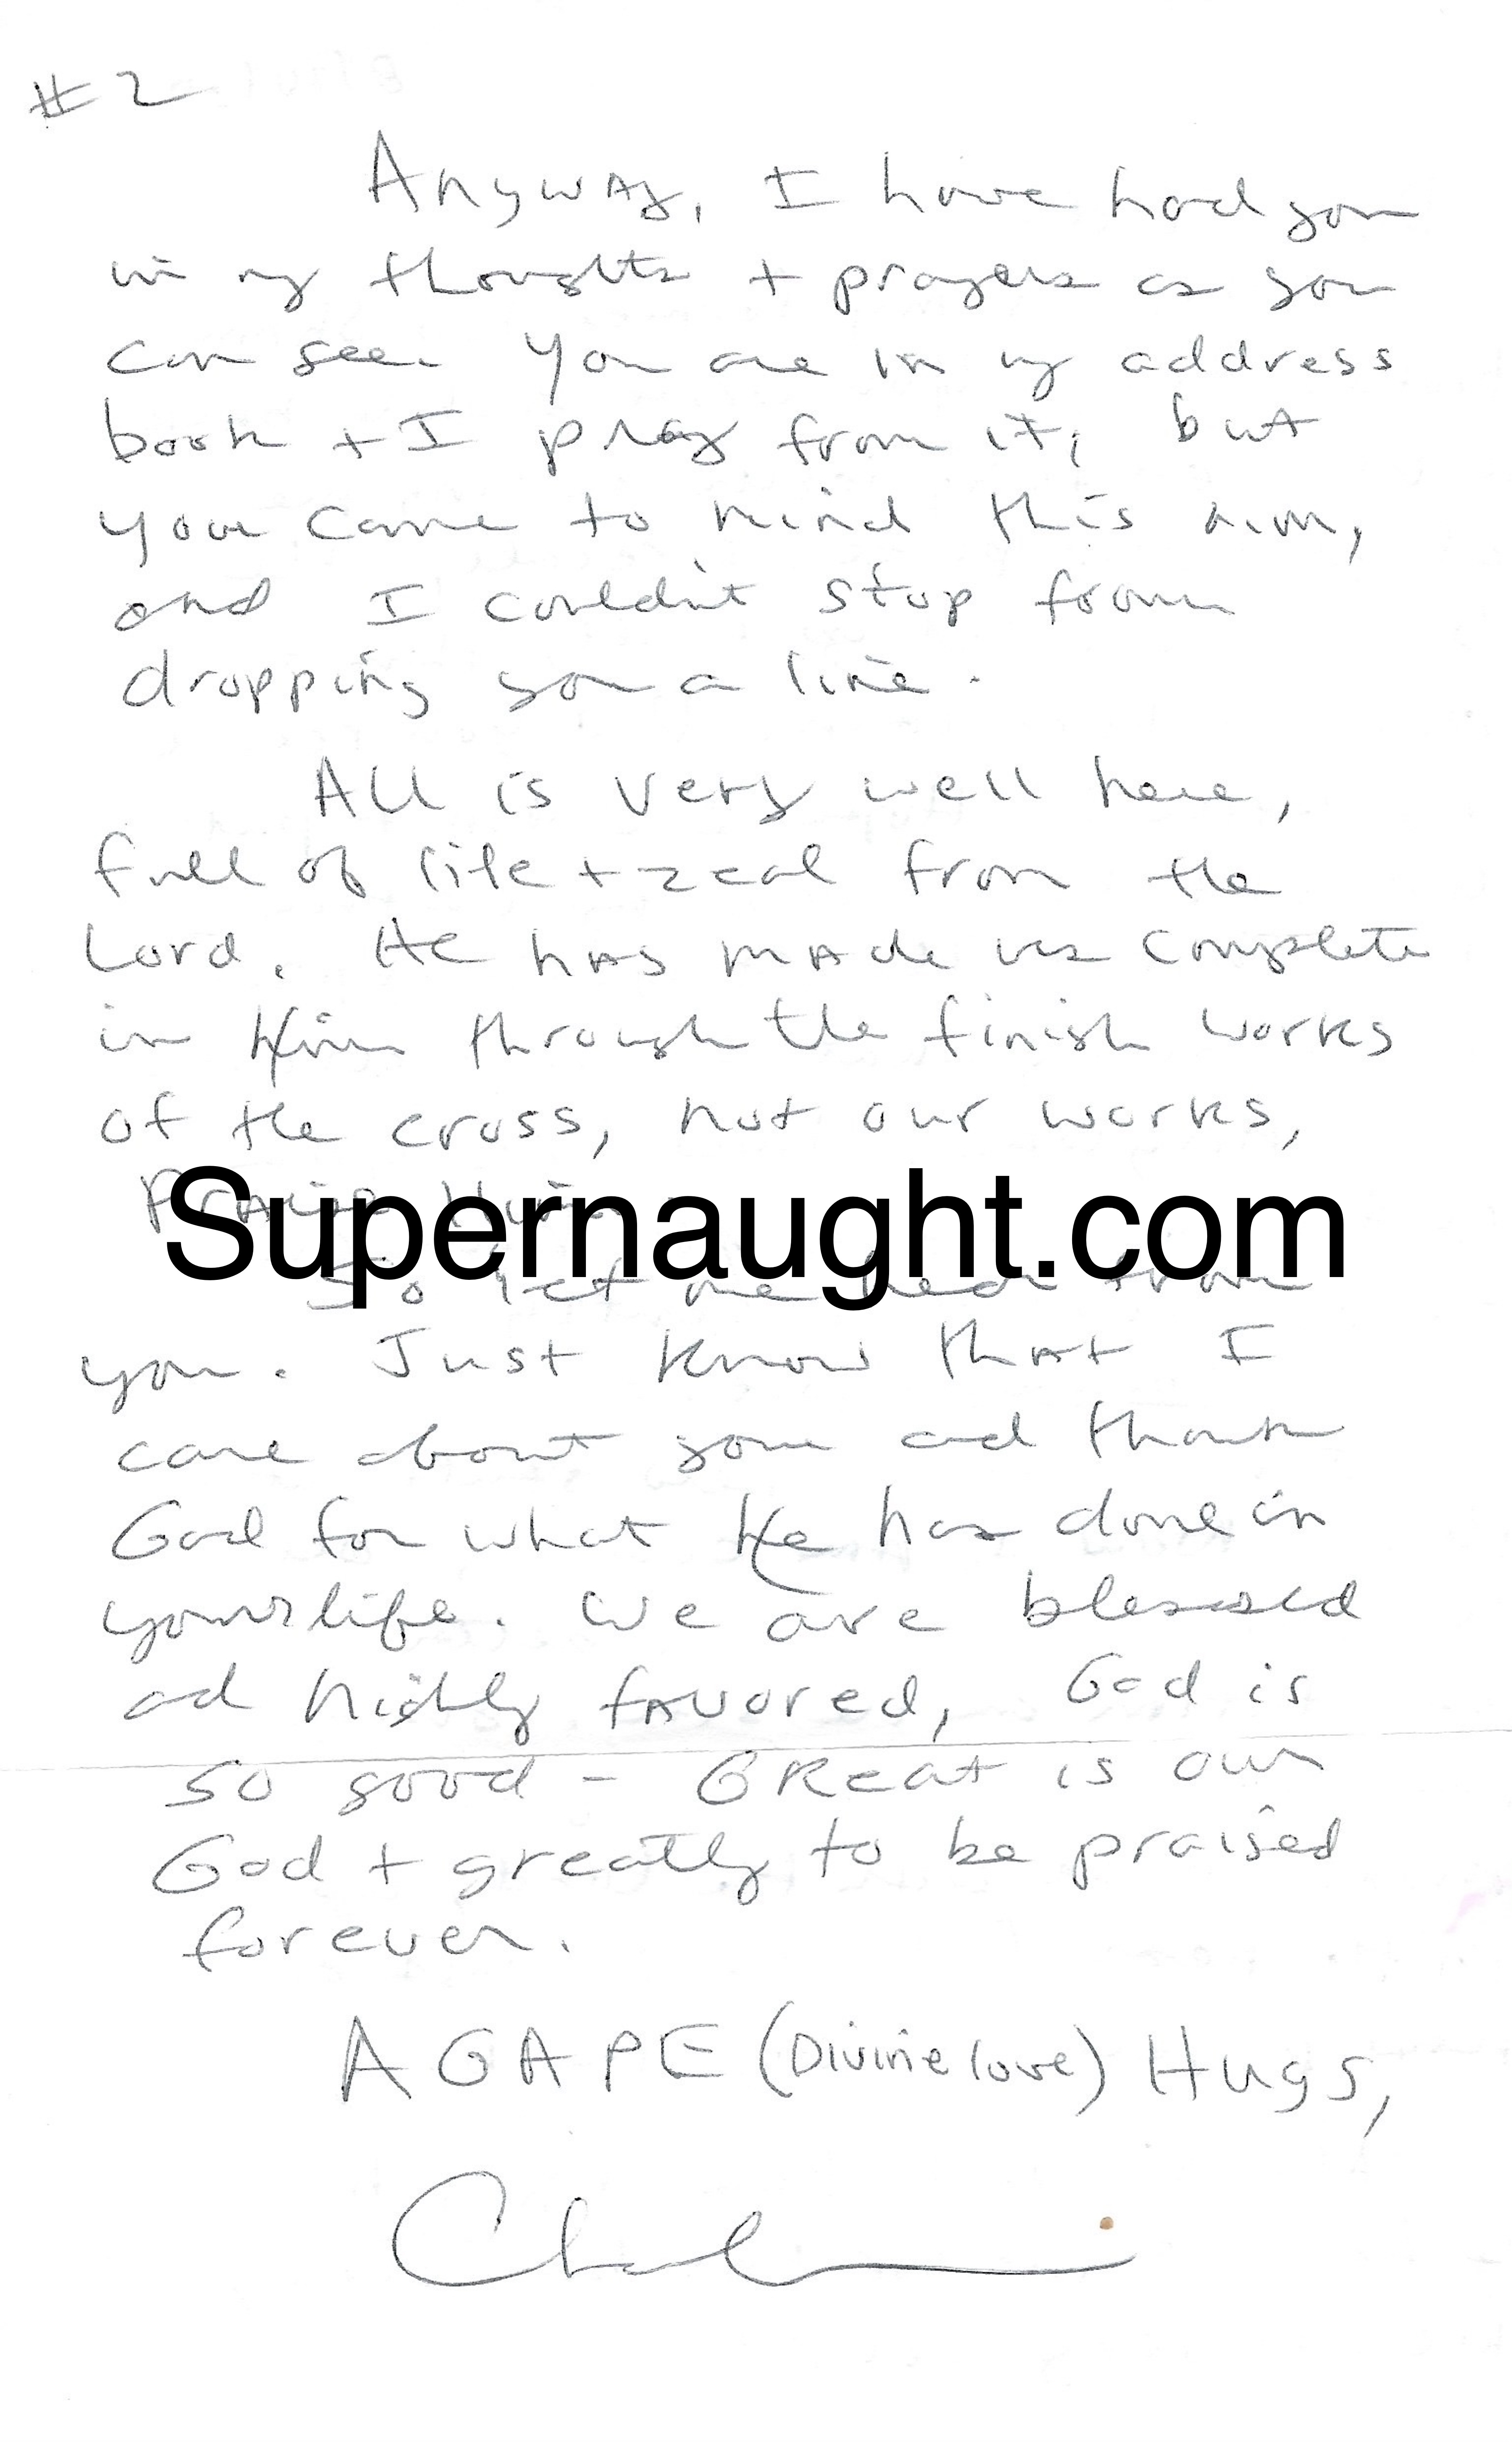 #2
Anyway, I have had you
in my thoughts + prayers as you
can see. You are in my address
book + I pray from it, but
you came to mind this
and I couldn't stop from
dropping you a line.
All is very well here,
full of life + zeal from the
Lord. He has made us complete
in Him through the finish works
of the cross, not our works,
Praise Him.
Supernaught.com
So let me hear from
you. Just know that I
care about you and thank
God for what He has done in
your life. We are blessed
ad highly favored, God is
so good - GReat is our
God + greatly to be praised
forever.
AGAPE (Divine love) Hugs,